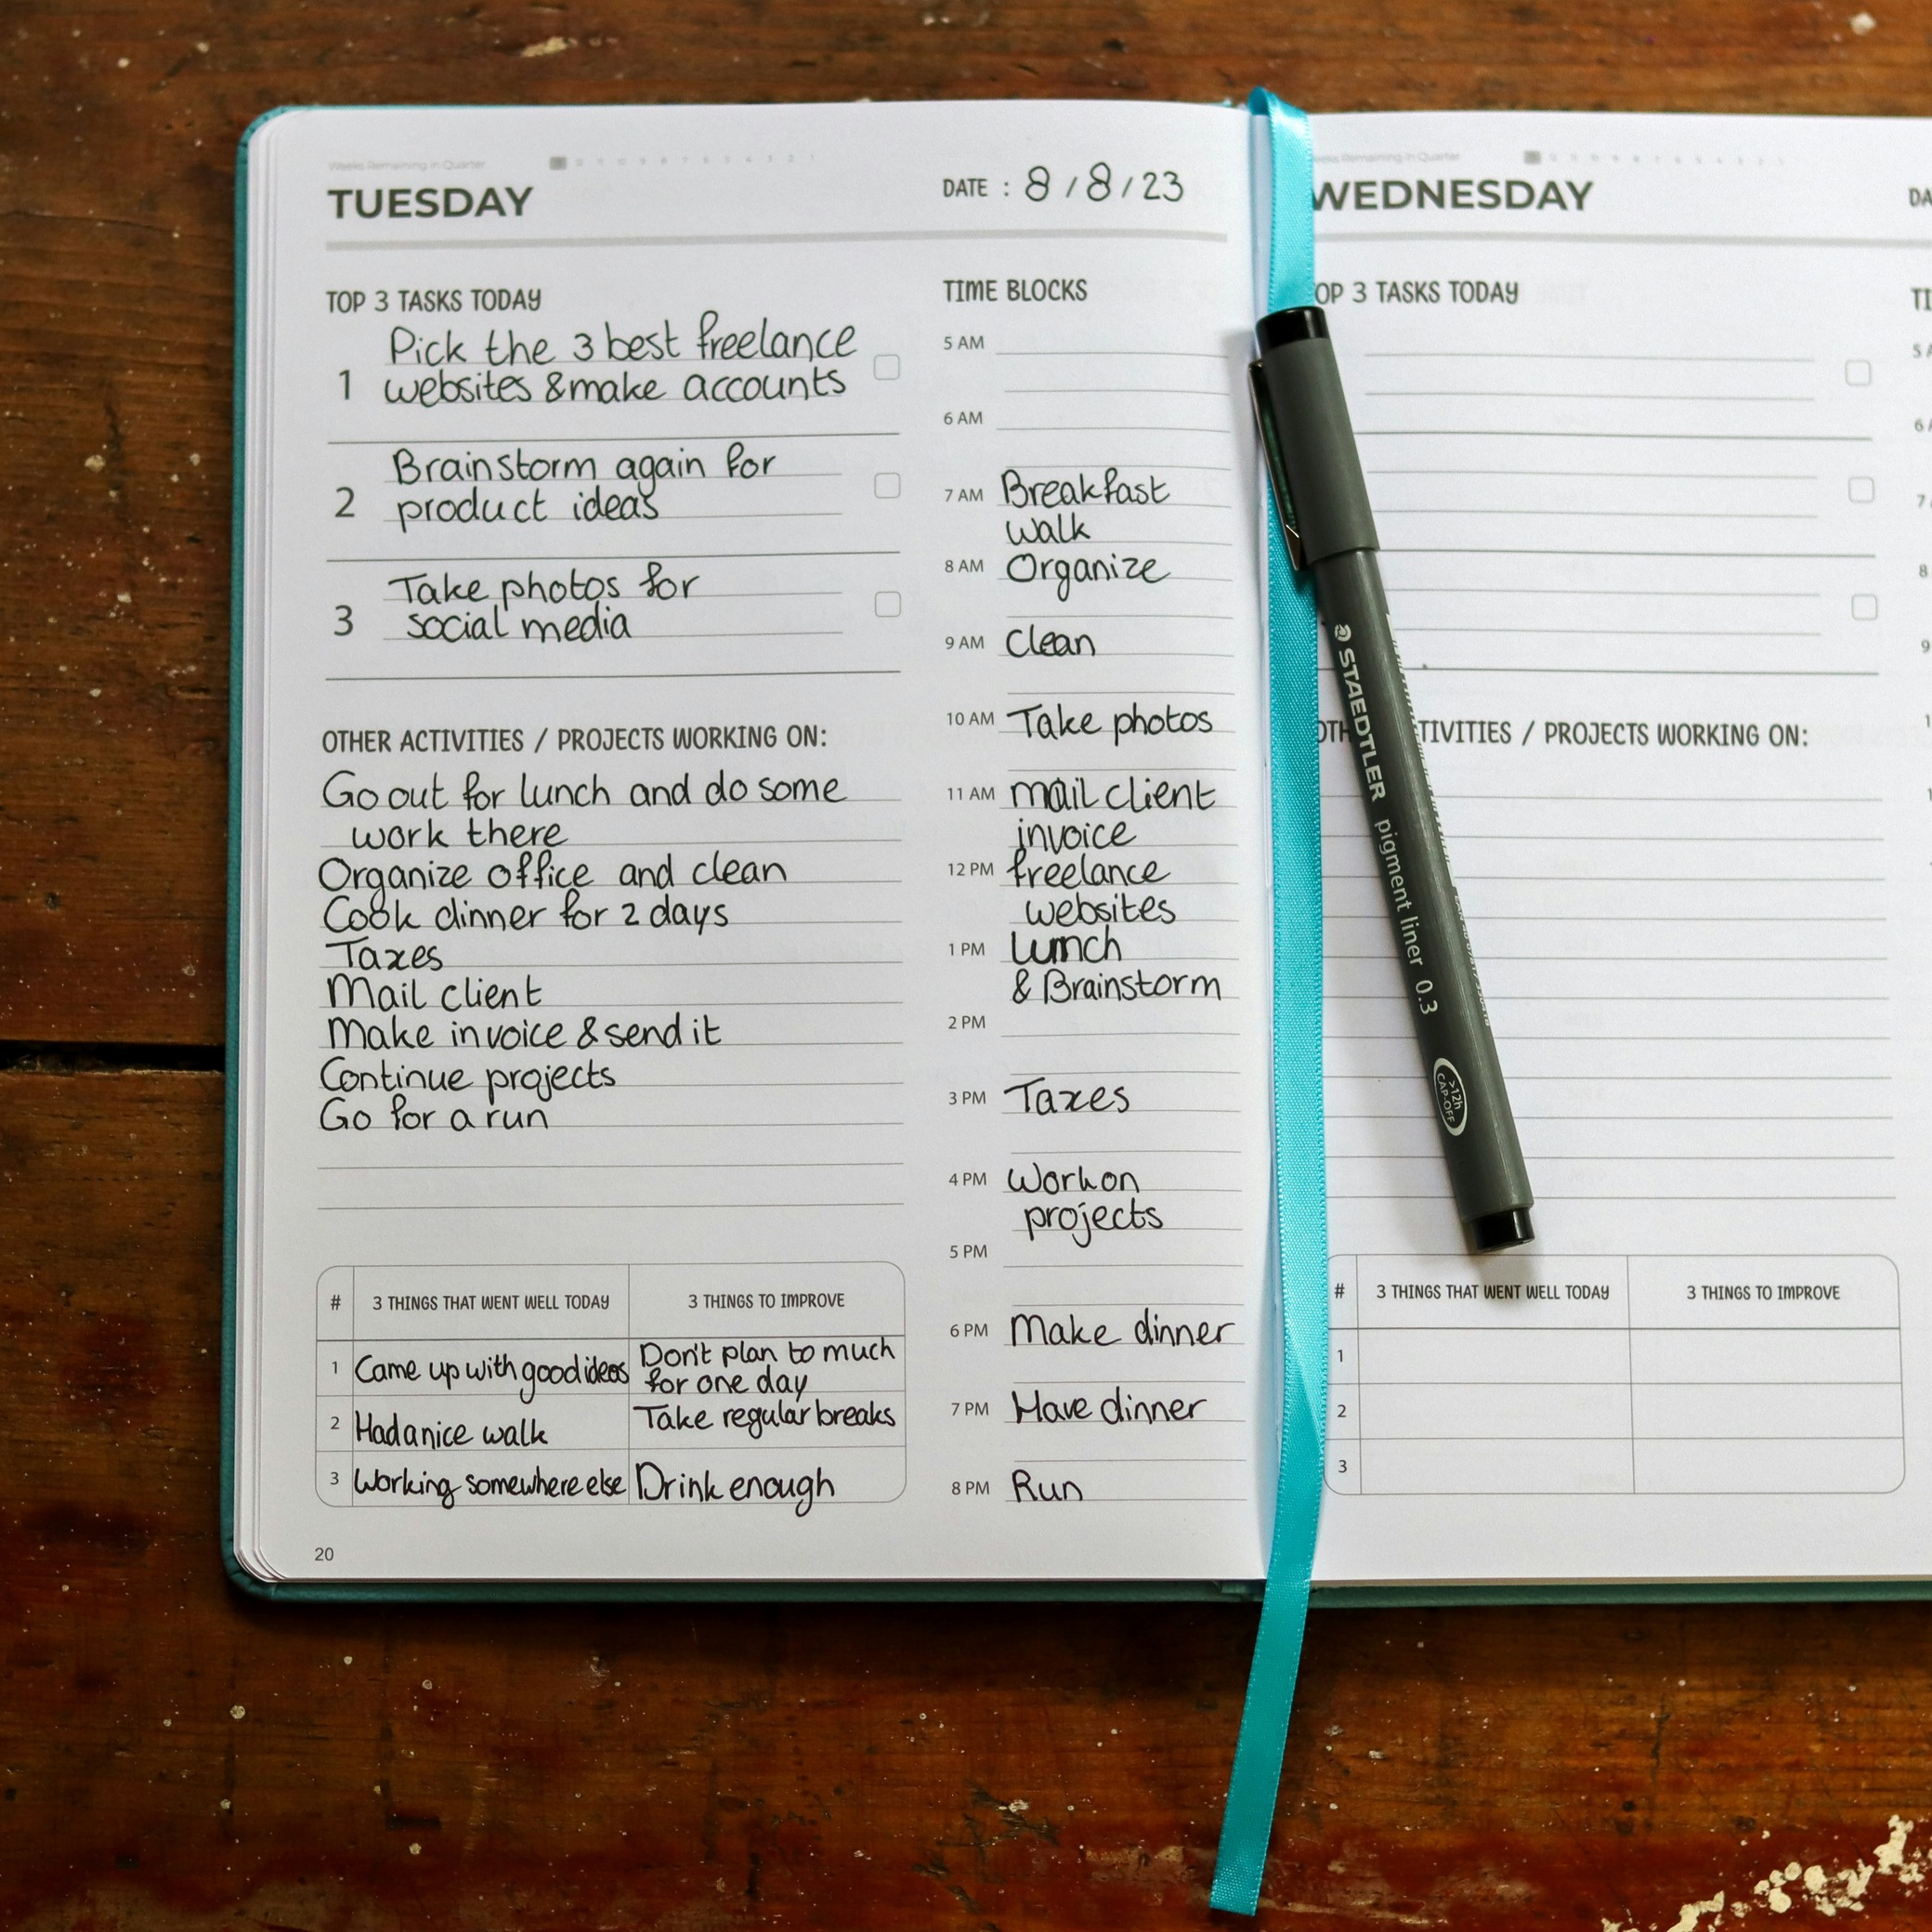 Weeks Remaining in Quarter
TUESDAY
DATE : 8/8/23
TOP 3 TASKS TODAY
1 Pick the 3 best freelance
websites & make accounts
2 Brainstorm again for
product ideas
3 Take photos for
social media
OTHER ACTIVITIES / PROJECTS WORKING ON:
Go out for lunch and do some
work there
Organize office and clean
Cook dinner for 2 days
Taxes
Mail client
Make invoice & send it
Continue projects
Go for a run
# 3 THINGS THAT WENT WELL TODAY 3 THINGS TO IMPROVE
1 Came up with good ideas Don't plan to much
for one day
2 Had a nice walk Take regular breaks
3 Working somewhere else Drink enough
20
TIME BLOCKS
5 AM
6 AM
7 AM Breakfast
walk
8 AM Organize
9 AM Clean
10 AM Take photos
11 AM mail client
invoice
12 PM freelance
websites
1 PM lunch
& Brainstorm
2 PM
3 PM Taxes
4 PM Work on
projects
5 PM
6 PM Make dinner
7 PM Have dinner
8 PM Run
STAEDTLER pigment liner 0.3
>12h
CAP-OFF
Remaining in Quarter
WEDNESDAY
DA
OP 3 TASKS TODAY
TI
5 A
6 A
7
8
9
OTH TIVITIES / PROJECTS WORKING ON:
# 3 THINGS THAT WENT WELL TODAY 3 THINGS TO IMPROVE
1
2
3